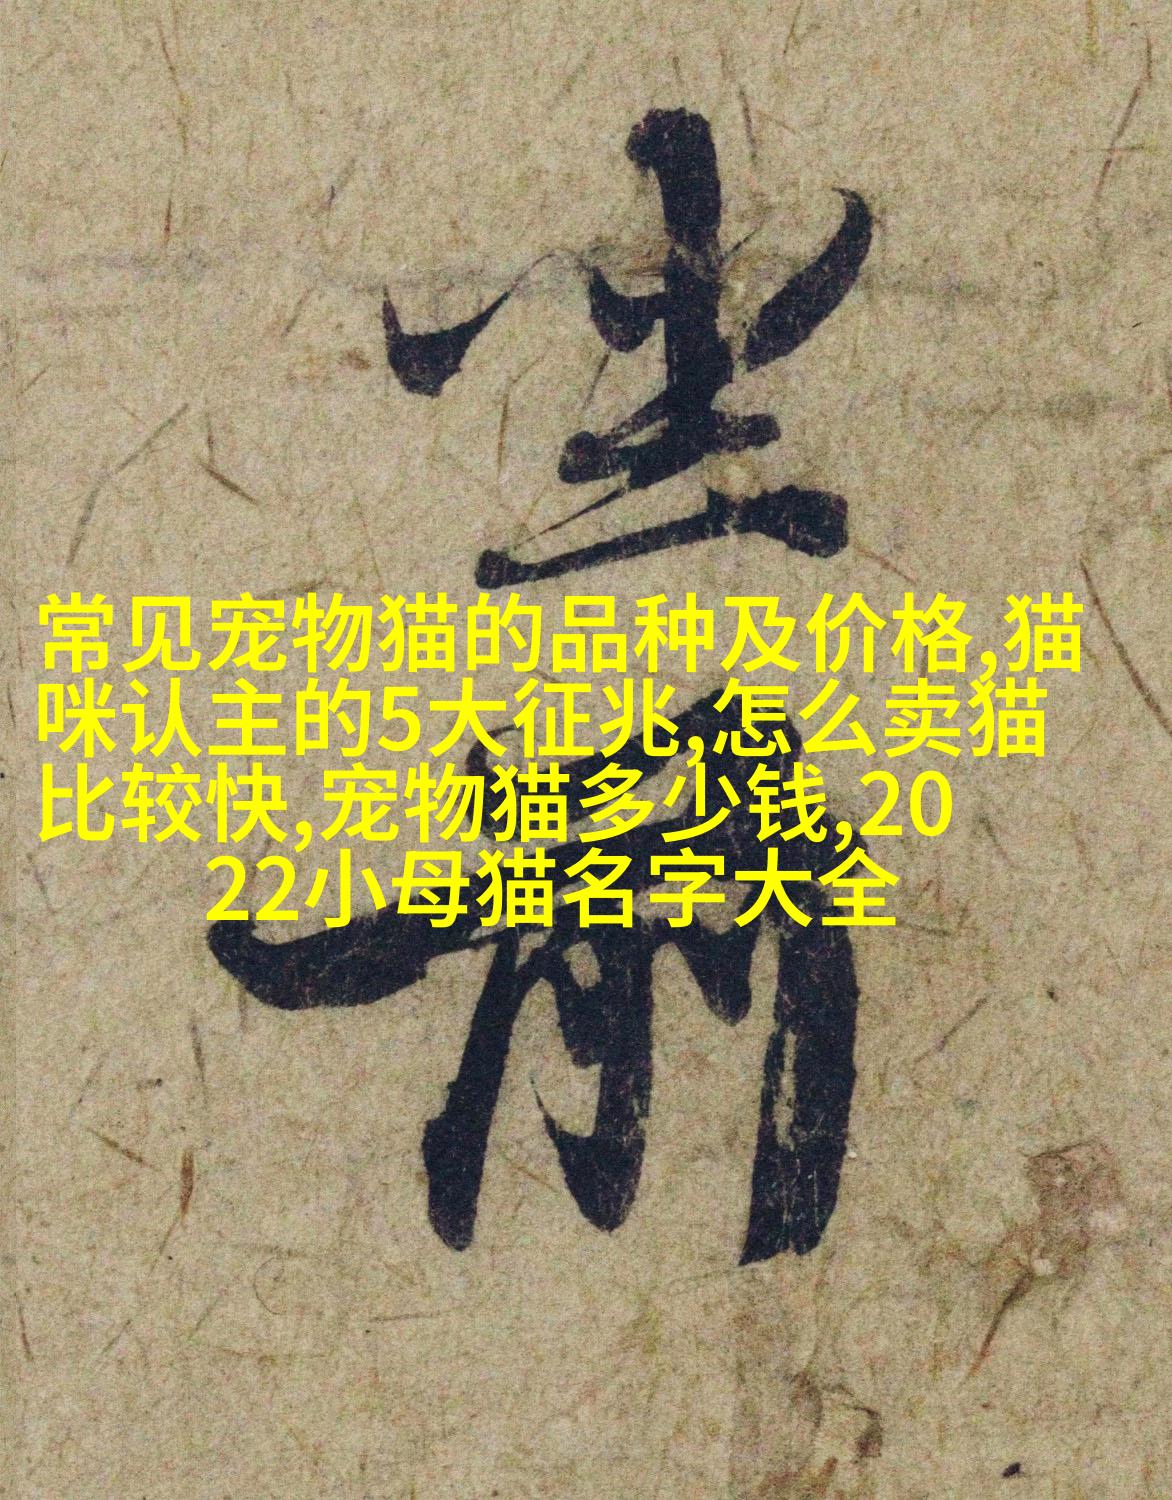 常见宠物猫的品种及价格,猫
咪认主的5大征兆,怎么卖猫
比较快,宠物猫多少钱,20
22小母猫名字大全